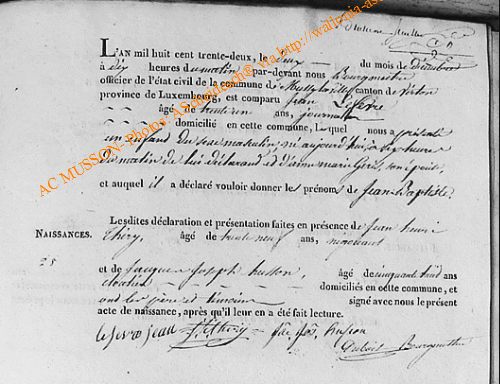 L'AN mil huit cent trente-deux, le deux du mois de Décembre
à dix heures du matin par-devant nous Bourgmestre
officier de l'état civil de la commune de canton de Virton
province de Luxembourg, est comparu jean Lefevre
âgé de trente un ans, journalier
domicilié en cette commune, Lequel nous a présenté
un enfant du sexe masculin, né aujourd'hui à sept heures
du matin de lui déclarant et d'anne marie son épouse,
et auquel il a déclaré vouloir donner les prénoms de Jean Baptiste.
Lesdites déclaration et présentation faites en présence de jean henri
NAISSANCES.
Thiry, âgé de trente neuf ans, négociant
25
et de jacques joseph husson, âgé de cinquante huit ans
cloutier domiciliés en cette commune, et
ont les père et témoins signé avec nous le présent
acte de naissance, après qu'il leur en a été fait lecture.
lefevre jean J.H. Thiry jac. jos. husson
Dubois Bourgmestre
AC MUSSON- Photos ASBL Geneadoc@ via http://wallonia-as